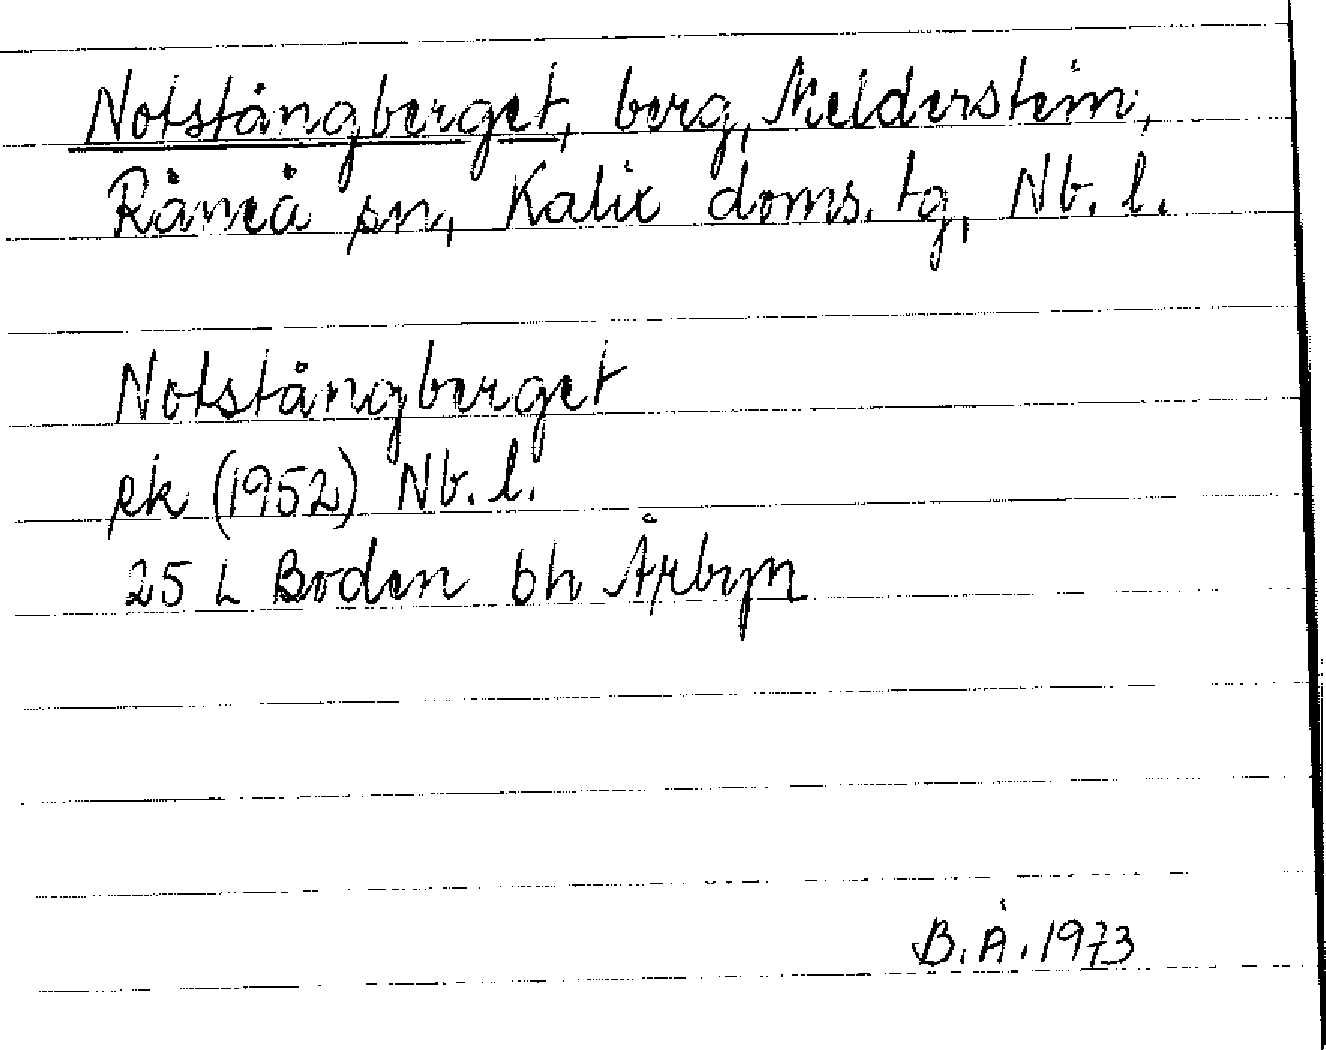 Notstångberget, berg, Melderstein,
Råneå sn, Kalix doms. tg, Nb. l.
Notstångberget
ek (1952) Nb. l.
25 L Boden bh Årbyn
B. Å. 1973